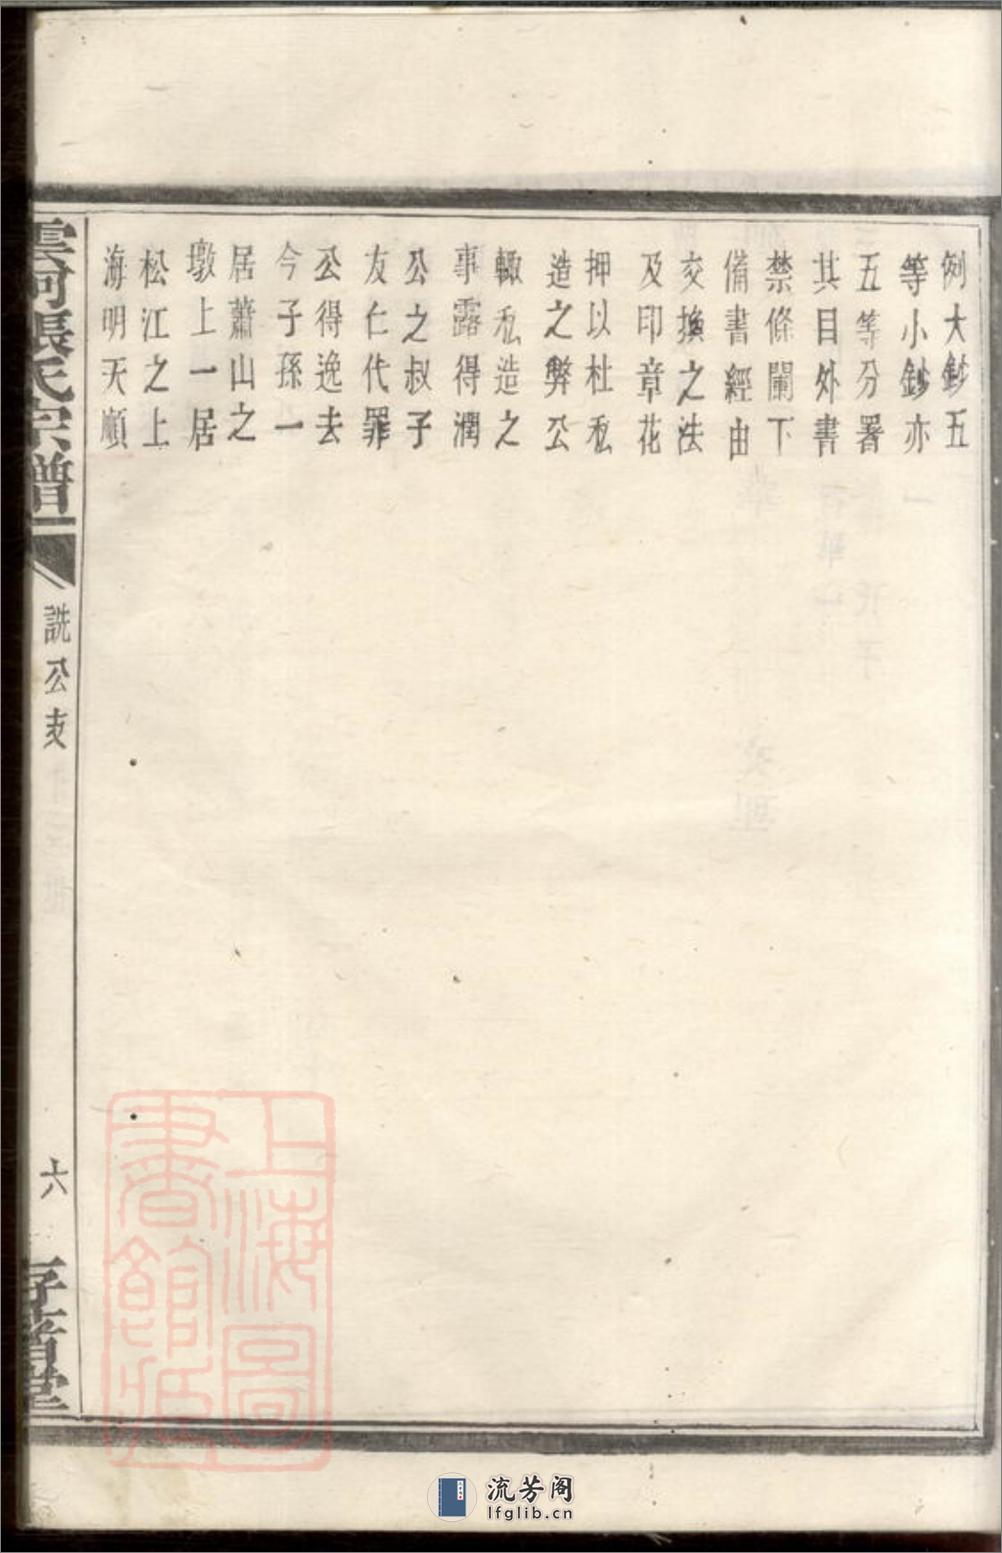 例大鈔五
等小鈔亦
五等分署
其目外書
禁條闌下
備書經由
交換之法
及印章花
押以杜私
造之弊公
輙私造之
事露得潤
公之叔子
友仁代罪
公得逸去
今子孫一
居蕭山之
墩上一居
松江之上
海明天順
雲河張氏宗譜
詵公支
六
存著堂
上海圖書館藏
流芳阁
lfglib.cn